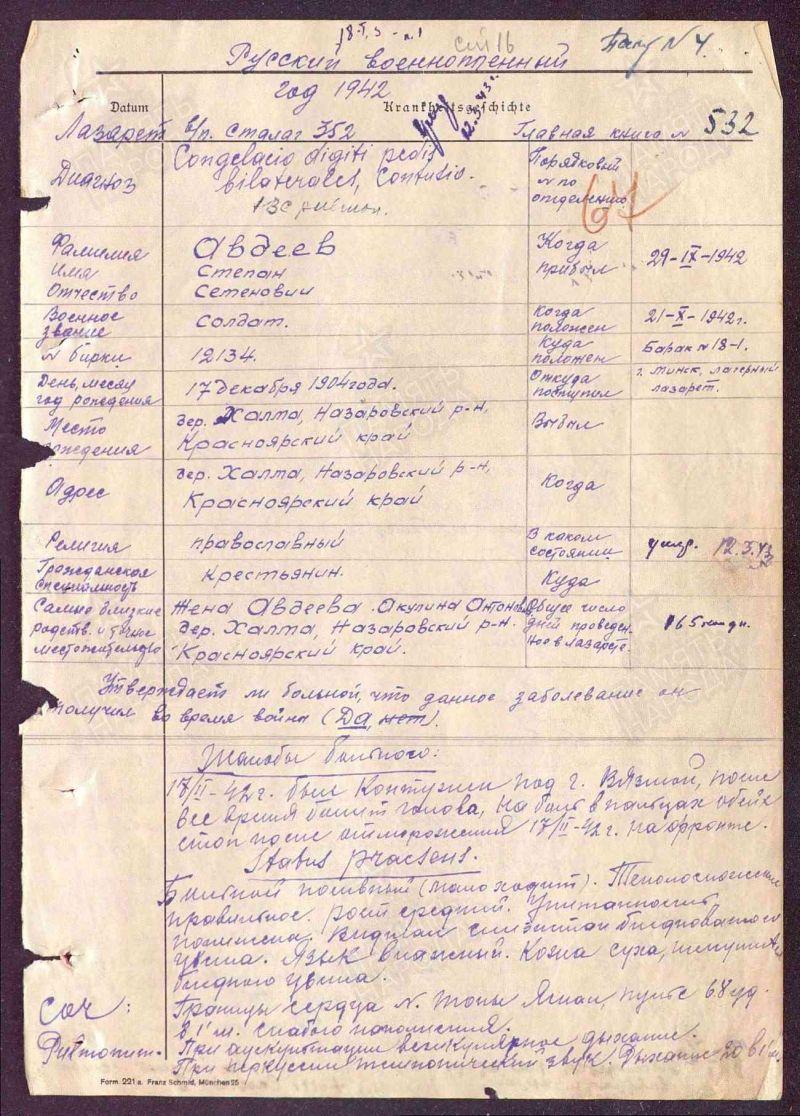 18.I.5 - л.1
Русский военнопленный
год 1942
Datum
Krankheitsgeschichte
12.3.43г.
Лазарет в/п. Сталаг 352
Главная книга № 532
Диагноз
Congelacio digiti pedis
bilaterales, Contusio.
Порядковый
№ по
отделению
67
Фамилия
Имя
Отчество
Авдеев
Степан
Сетеновии
Когда
прибыл
29-IX-1942
Военное
звание
Солдат.
Когда
положен
21-X-1942г.
№ бирки
12134.
Куда
положен
Барак №18-1.
День, месяц
год рождения
17 декабря 1904 года.
Откуда
поступил
г. Минск, лагерный
лазарет.
Место
рождения
дер. Халта, Назаровский р-н,
Красноярский край
Выбыл
Адрес
дер. Халта, Назаровский р-н,
Красноярский край
Когда
Религия
православный
В каком
состоянии
умер. 12.3.43
Гражданская
специальность
Крестьянин.
Куда
Самые близкие
родств. и точное
местожительство
Жена Авдеева Акулина Антонов
дер. Халта, Назаровский р-н.
Красноярский край.
Общее число
дней проведен
ное в лазарете.
165
Утверждает ли больной, что данное заболевание он
получил во время война (Да, нет).
Жалобы больного:
17/II-42г. был контужен под г. Вязмой, после
все время болит голова, на боль в пальцах обеих
стоп после отморожения 17/II-42г. на фронте.
Status praesens.
Больной (мало ходит). Телосложение
правильное. Рост средний. Упитанность
понижена. Видимая слизистая бледноватого
цвета. Язык влажный. Кожа суха,
бледного цвета.
ССС:
Границы сердца N. Тоны ясны, пульс 68 уд.
в 1' м. слабого наполнения.
При аускультации везикулярное дыхание.
При перкуссии тимпонический звук. Дыхание 20 в 1' м.
Form. 221 a. Franz Schmid, München 25